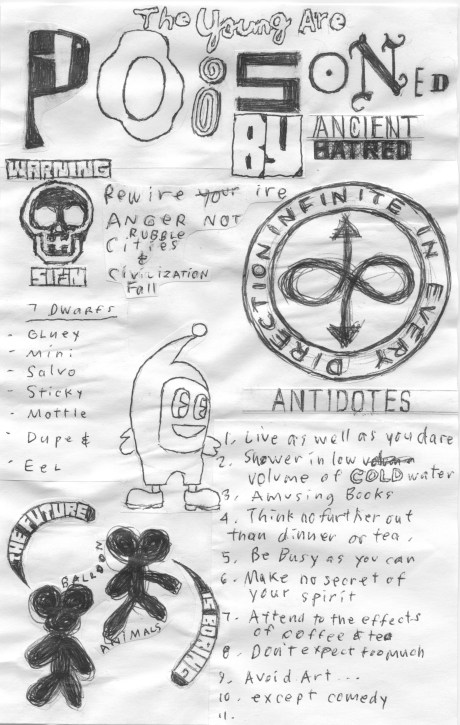 The Young Are
POiSONED
BY
ANCIENT
HATRED
WARNING
SIGN
Rewire your ire
ANGER NOT
RUBBLE
Cities
&
CIVILIZATION
Fall
INFINITE IN EVERY DIRECTION
7 DWARFS
- Gluey
- Mini
- Salvo
- Sticky
- Mottle
- Dupe &
- Eel
ANTIDOTES
1. Live as well as you dare
2. Shower in low
volume of COLD water
3. Amusing Books
4. Think no further out
than dinner or tea.
5. Be Busy as you can
6. Make no secret of
your spirit
7. Attend to the effects
of coffee & tea
8. Don't expect too much
9. Avoid Art...
10. except comedy
11.
THE FUTURE
IS BORING
BALLOON
ANIMALS